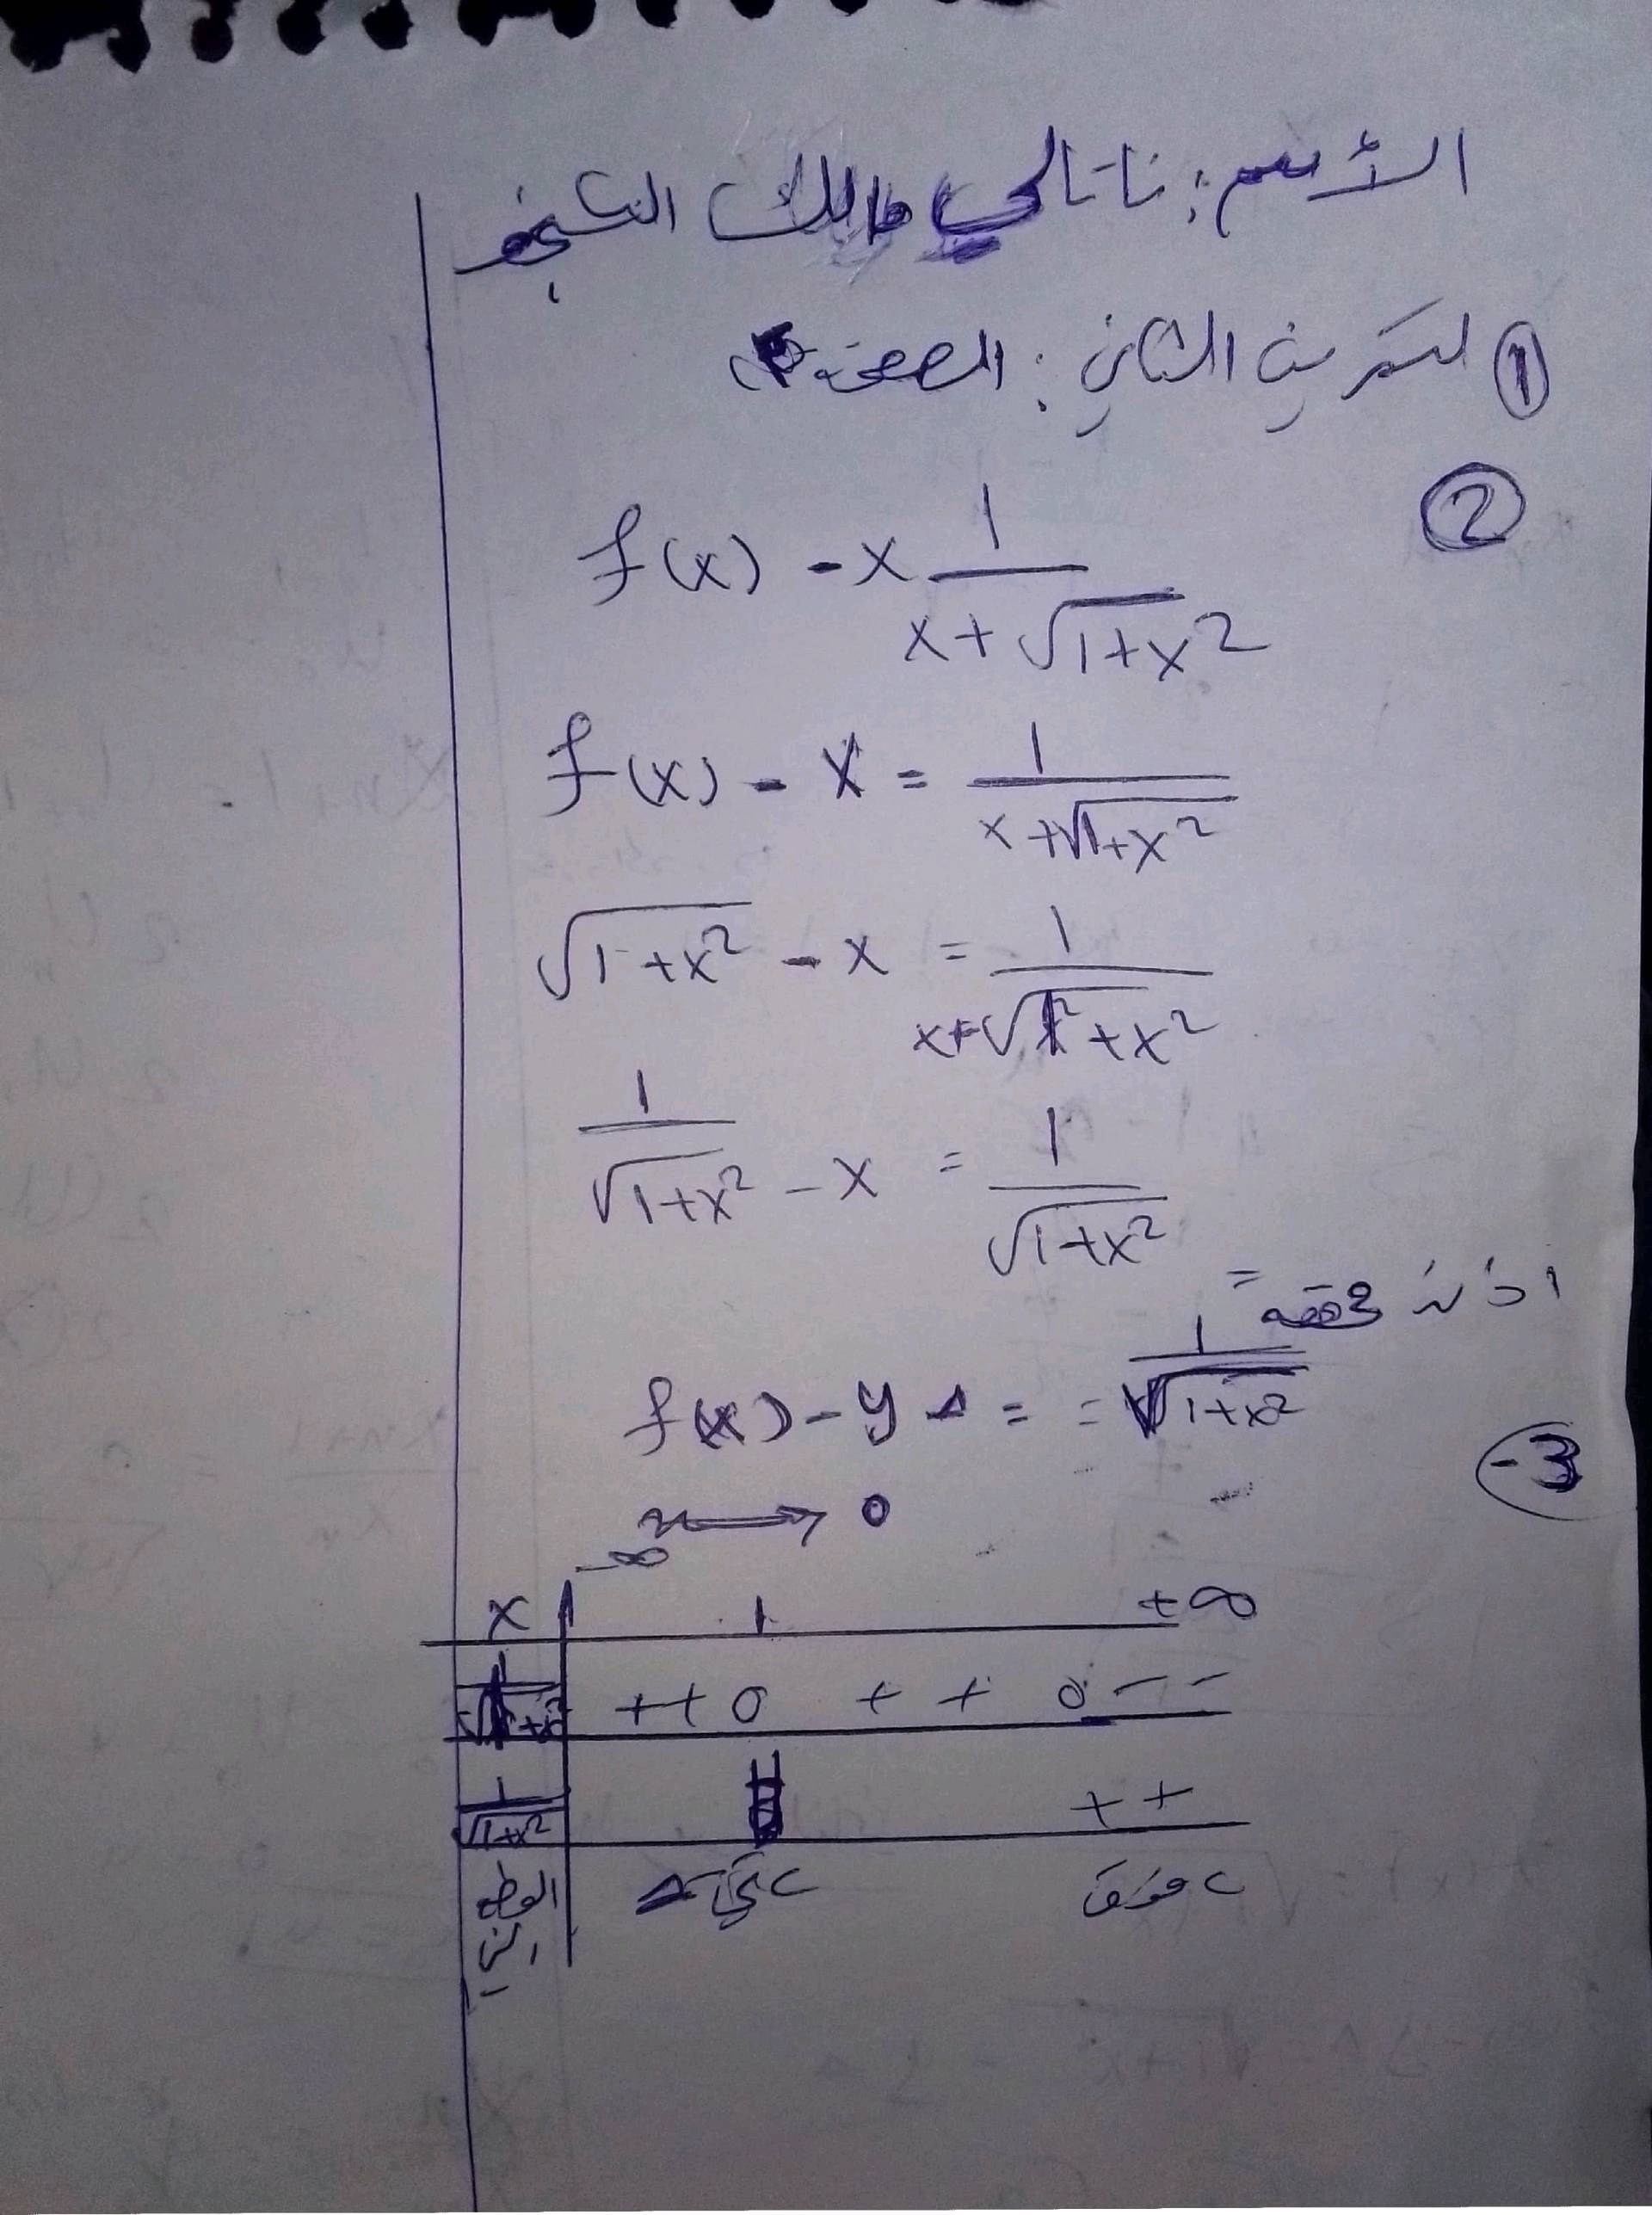 الأسم: ناتالي مالك الشيخ
① لتمرين الثاني: الصفحة
②
f(x) - x 1/(x+√1+x²)
f(x) - x = 1/(x+√1+x²)
√1+x² - x = 1/(x+√1²+x²)
1/(√1+x²) - x = 1/√1+x²
اذن محققة =
f(x) - y Δ = = 1/√1+x²
-3
x → 0
-∞
x 1 +∞
++ 0 + + 0 - -
1/√1+x² + +
الوضع النسبي C تحت Δ C فوق